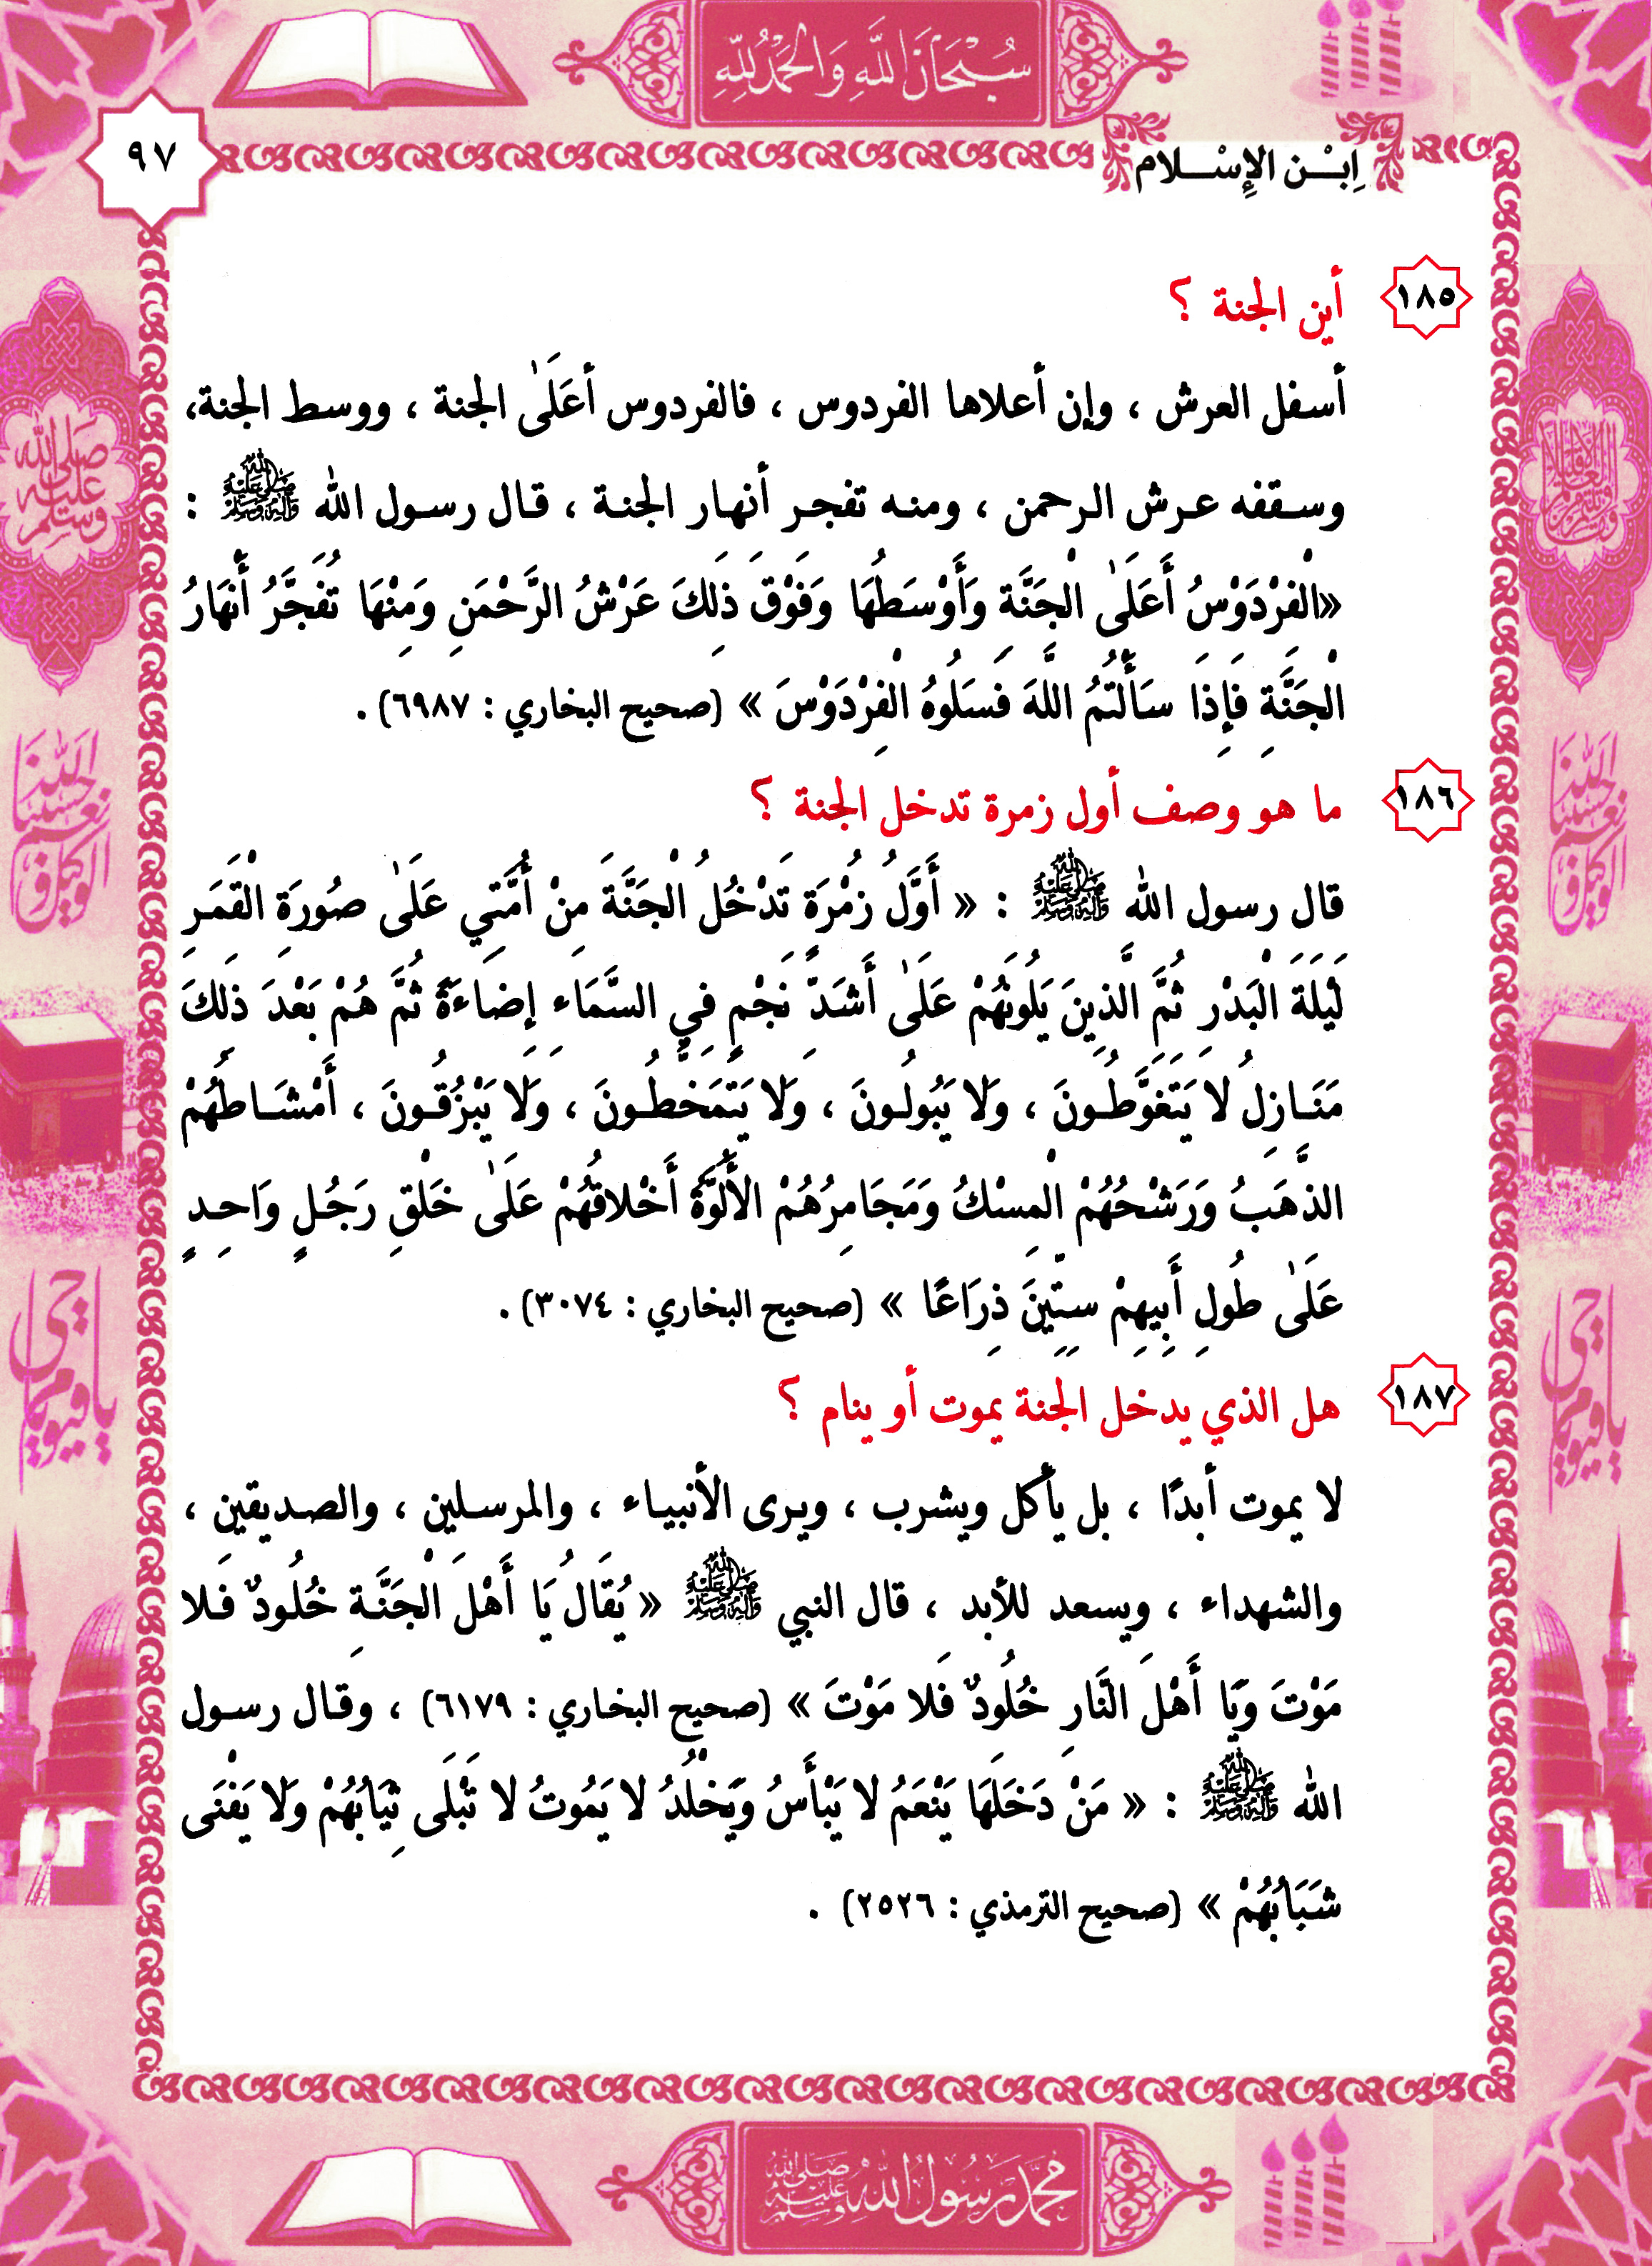 سُبْحَانَ اللَّهِ وَالْحَمْدُ لِلَّهِ
٩٧
اِبْـن الإِسْـلام
١٨٥
أين الجنة ؟
أسفل العرش ، وإن أعلاها الفردوس ، فالفردوس أعَلَىٰ الجنة ، ووسط الجنة،
وسقفه عرش الرحمن ، ومنه تفجر أنهار الجنة ، قال رسول الله ﷺ :
«الْفِرْدَوْسُ أَعَلَىٰ الْجَنَّةِ وَأَوْسَطُهَا وَفَوْقَ ذَلِكَ عَرْشُ الرَّحْمَنِ وَمِنْهَا تُفَجَّرُ أَنْهَارُ
الْجَنَّةِ فَإِذَا سَأَلْتُمُ اللَّهَ فَسَلُوهُ الْفِرْدَوْسَ » (صحيح البخاري : ٦٩٨٧) .
١٨٦
ما هو وصف أول زمرة تدخل الجنة ؟
قال رسول الله ﷺ : « أَوَّلُ زُمْرَةٍ تَدْخُلُ الْجَنَّةَ مِنْ أُمَّتِي عَلَىٰ صُورَةِ الْقَمَرِ
لَيْلَةَ الْبَدْرِ ثُمَّ الَّذِينَ يَلُونَهُمْ عَلَىٰ أَشَدِّ نَجْمٍ فِي السَّمَاءِ إِضَاءَةً ثُمَّ هُمْ بَعْدَ ذَلِكَ
مَنَـازِلُ لَا يَتَغَوَّطُـونَ ، وَلَا يَبُولُـونَ ، وَلَا يَتَمَخَّطُـونَ ، وَلَا يَبْزُقُـونَ ، أَمْشَـاطُهُمْ
الذَّهَبُ وَرَشْحُهُمْ الْمِسْكُ وَمَجَامِرُهُمْ الأَلُوَّةُ أَخْلاقُهُمْ عَلَىٰ خَلْقِ رَجُلٍ وَاحِدٍ
عَلَىٰ طُولِ أَبِيهِمْ سِتِّينَ ذِرَاعًا » (صحيح البخاري : ٣٠٧٤) .
١٨٧
هل الذي يدخل الجنة يموت أو ينام ؟
لا يموت أبدًا ، بل يأكل ويشرب ، ويرى الأنبياء ، والمرسلين ، والصديقين ،
والشهداء ، ويسعد للأبد ، قال النبي ﷺ « يُقَالُ يَا أَهْلَ الْجَنَّةِ خُلُودٌ فَلا
مَوْتَ وَيَا أَهْلَ النَّارِ خُلُودٌ فَلا مَوْتَ » (صحيح البخاري : ٦١٧٩) ، وقال رسول
الله ﷺ : « مَنْ دَخَلَهَا يَنْعَمُ لا يَبْأَسُ وَيَخْلُدُ لا يَمُوتُ لا تَبْلَى ثِيَابُهُمْ وَلا يَفْنَى
شَبَابُهُمْ » (صحيح الترمذي : ٢٥٢٦) .
محمد رسول الله صلى الله عليه وسلم